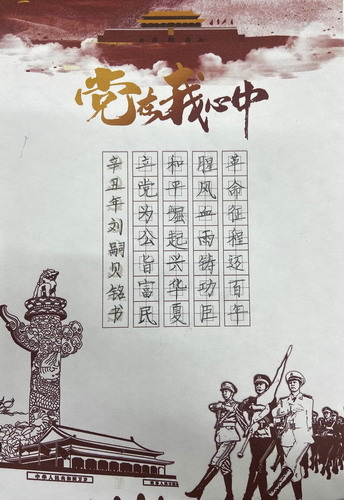 党在我心中
革命征程迈百年
腥风血雨铸功臣
和平崛起兴华夏
立党为公旨富民
辛丑年刘嗣贝铭书
中华人民共和国万岁